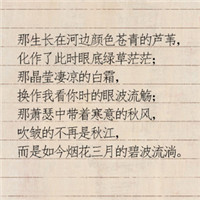 那生长在河边颜色苍青的芦苇，
化作了此时眼底绿草茫茫；
那晶莹凄凉的白霜，
换作我看你时的眼波流觞；
那萧瑟中带着寒意的秋风，
吹皱的不再是秋江，
而是如今烟花三月的碧波流淌。